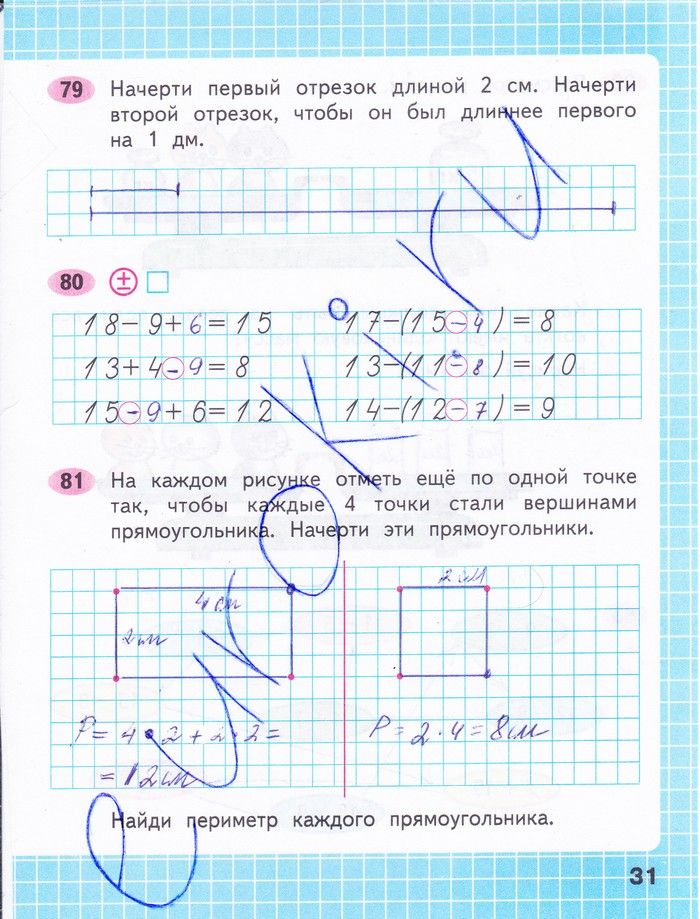 79 Начерти первый отрезок длиной 2 см. Начерти
второй отрезок, чтобы он был длиннее первого
на 1 дм.
80 ±
18-9+6=15 17-(15-4)=8
13+4-9=8 13-(11-8)=10
15-9+6=12 14-(12-7)=9
81 На каждом рисунке отметь ещё по одной точке
так, чтобы каждые 4 точки стали вершинами
прямоугольника. Начерти эти прямоугольники.
4 см 2 см
2 см
P = 4·2+2·2= P = 2·4=8см
=12см
Найди периметр каждого прямоугольника.
31